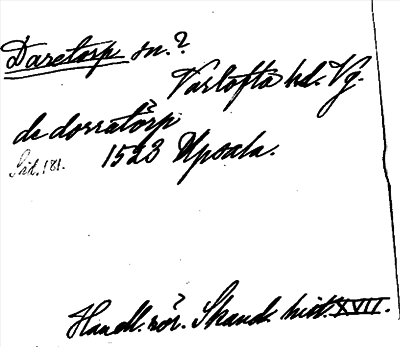 Daretorp sn.?
Vartofta hd. Vg.
de dorratörp
1523 Upsala.
Sid. 181.
Handl. rör. Skand. hist. XVII.